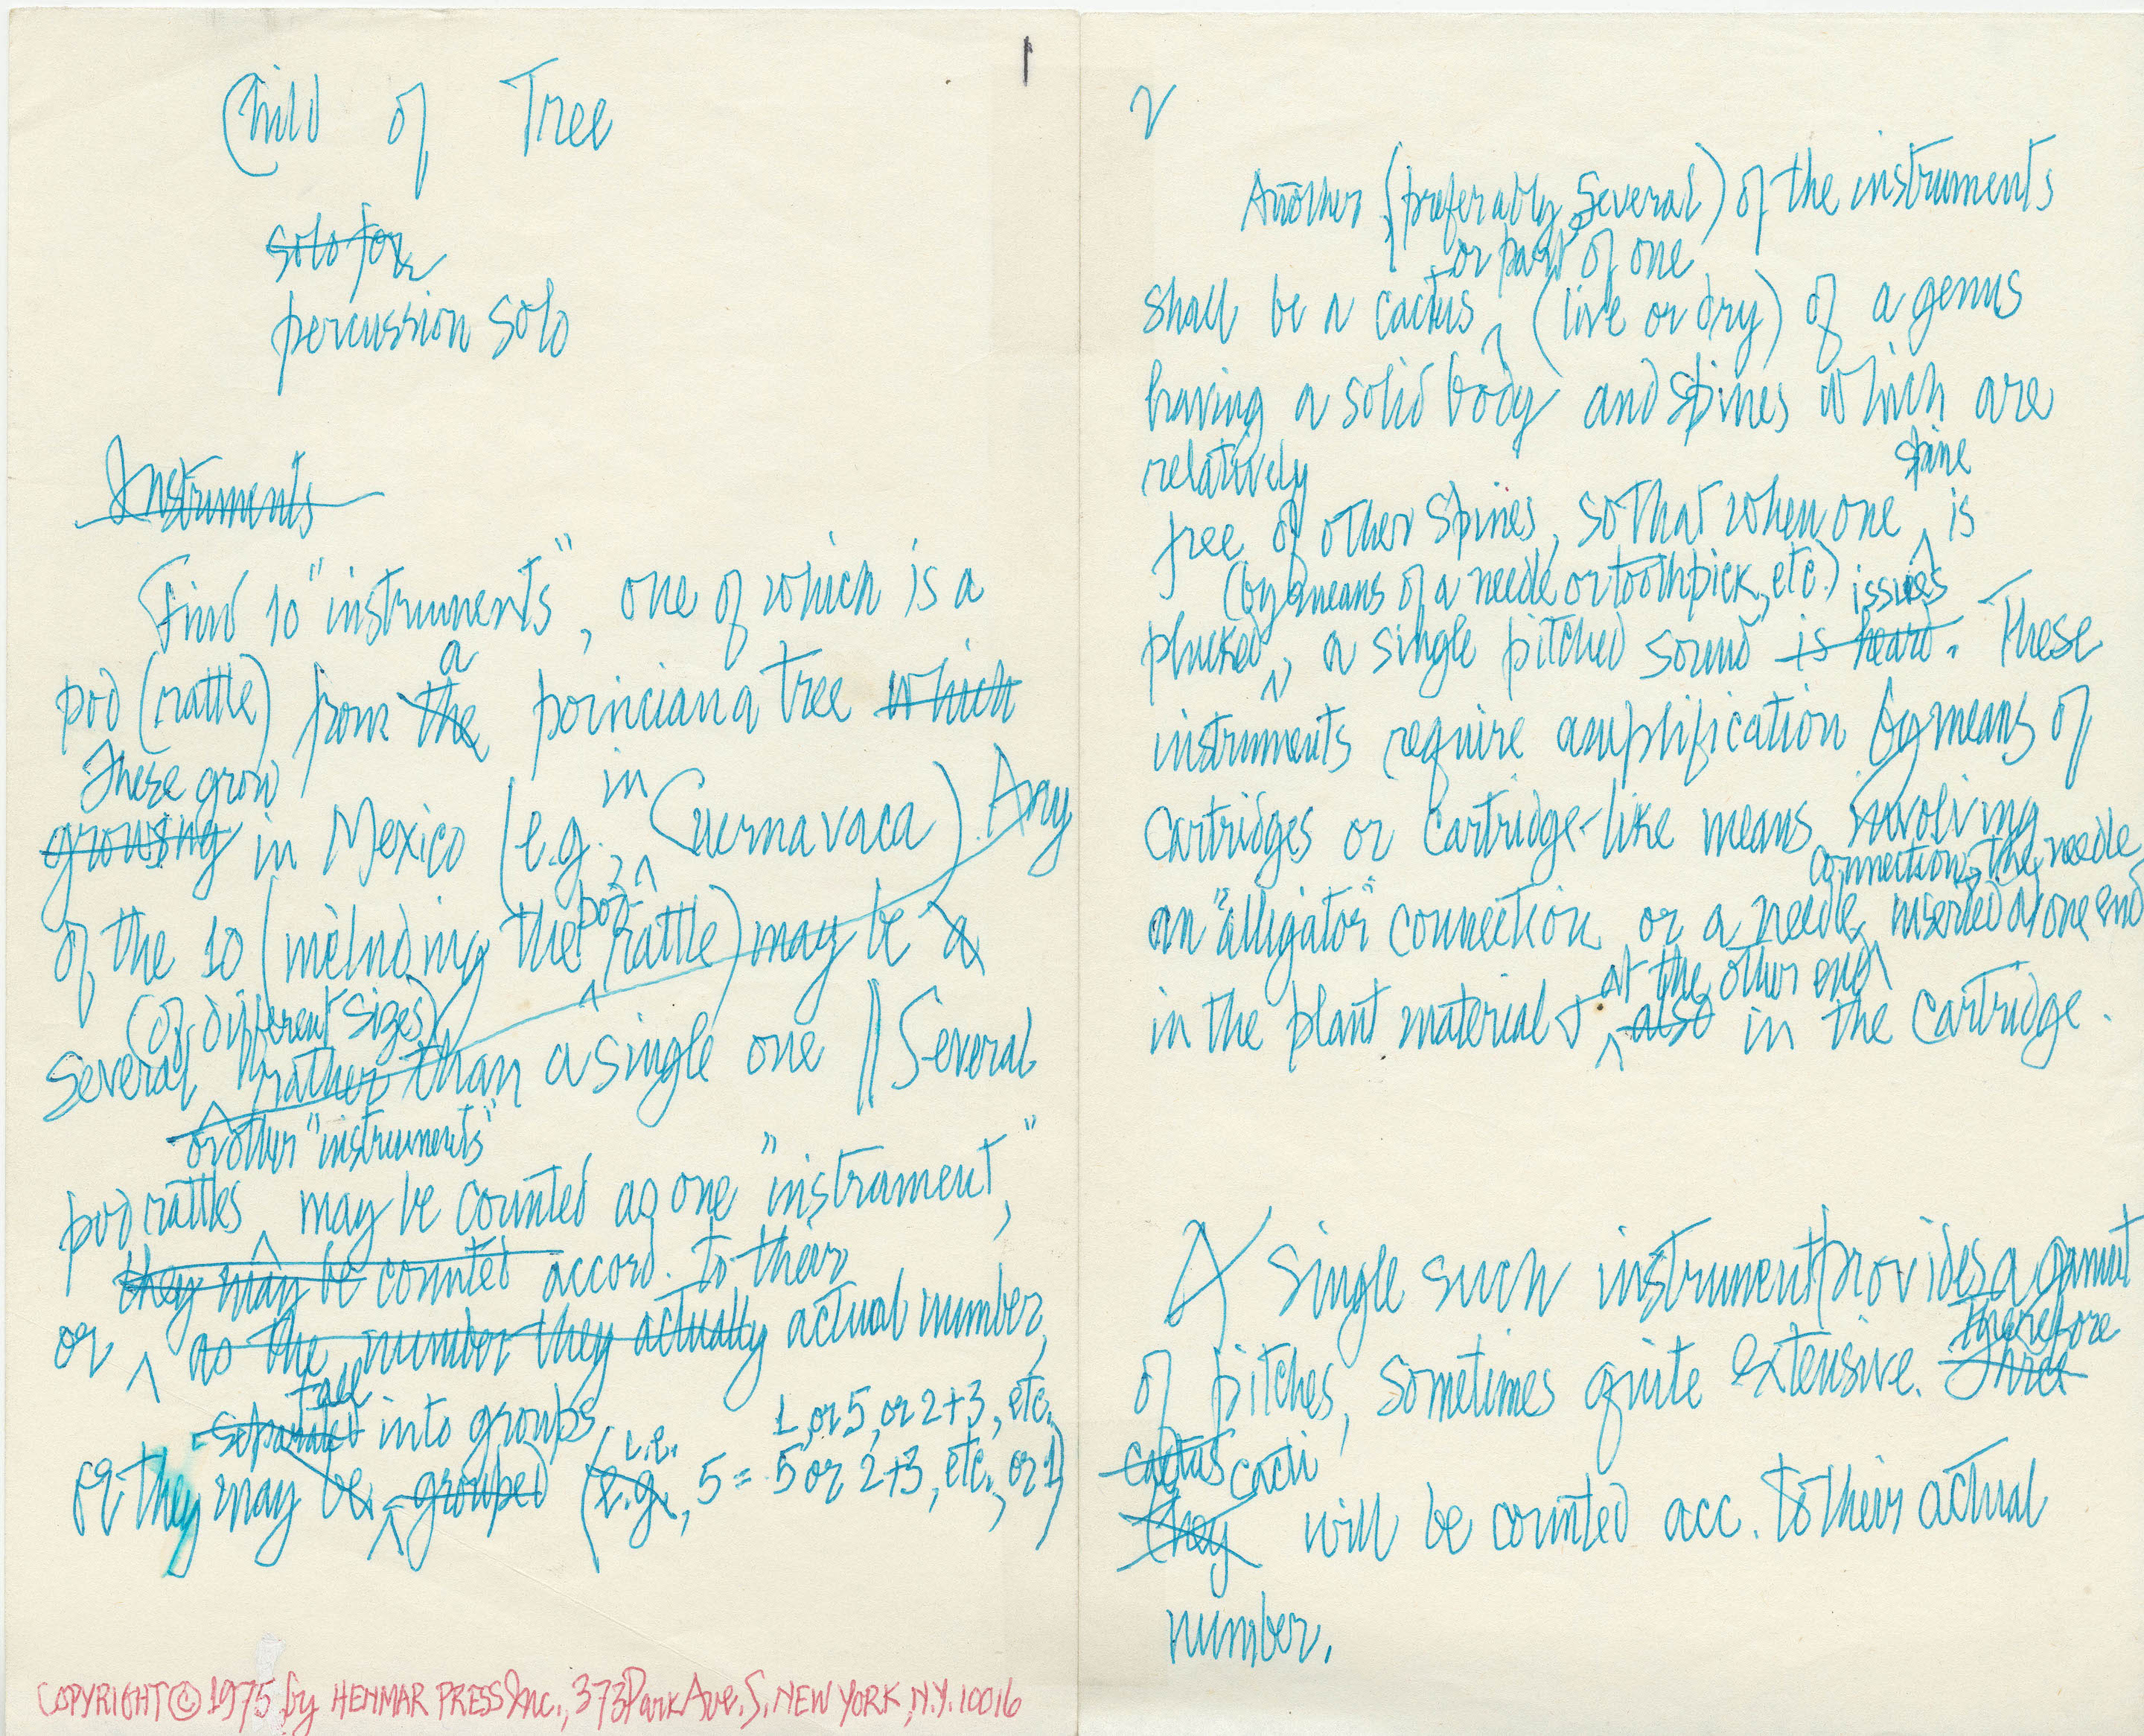 1
Child of Tree
solo for
percussion solo
Instruments
Find 10 "instruments", one of which is a
a
pod (rattle) from the poinciana tree which
These grow
in
growing in Mexico (e.g. Cuernavaca). Any
pod-
of the 10 (including the rattle) may be a
(of different sizes)
several rather than a single one || Several
or other "instruments"
pod rattles may be counted as one "instrament,"
they may be counted accord. to their
or as the number they actually actual number,
fall
separated into groups
i.e. 1, or 5, or 2+3, etc.
or they may be grouped (e.g., 5 = 5 or 2+3, etc., or 1)
COPYRIGHT © 1975 by HENMAR PRESS Inc., 373 Park Ave. S. NEW YORK, N.Y. 10016
2
Another (preferably several) of the instruments
or part of one
shall be a cactus, (live or dry) of a genus
having a solid body and spines which are
relatively
spine
free of other spines, so that when one is
(by means of a needle or toothpick, etc.) issues
plucked, a single pitched sound is heard. These
instruments require amplification by means of
cartridges or cartridge-like means involving
connection, the needle
an "alligator" connection or a needle inserted at one end
at the other end
in the plant material + also in the cartridge.
A single such instrument provides a gamut
therefore
of pitches, sometimes quite extensive. Three
cactus cacti
they will be counted acc. to their actual
number.